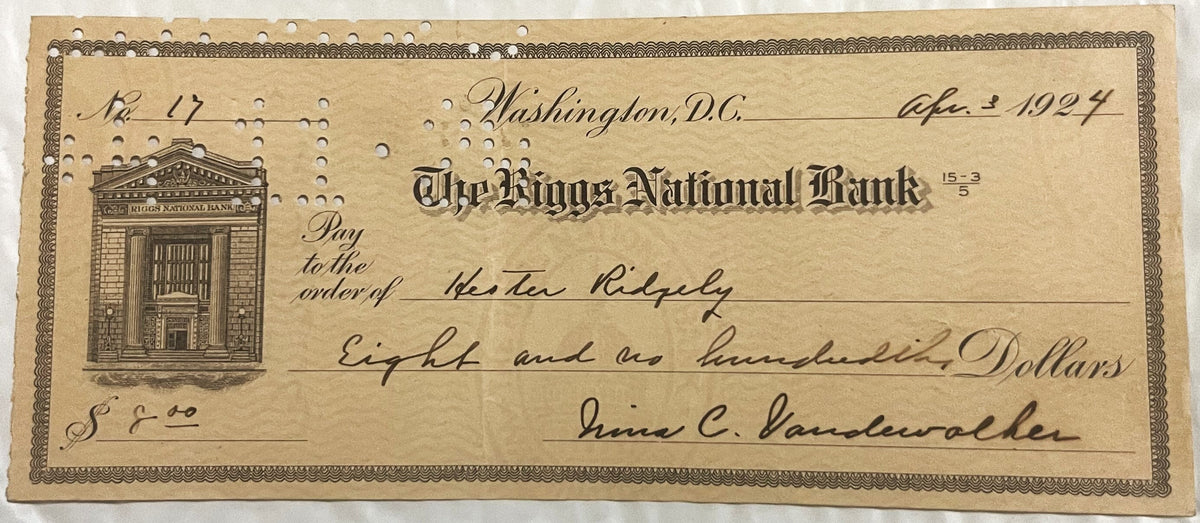 No. 17 Washington, D.C. Apr. 3 1924
The Riggs National Bank 15-3/5
RIGGS NATIONAL BANK
Pay
to the
order of Hester Ridgely
Eight and no hundredths Dollars
$ 8.00
Nina C. Vandewalker